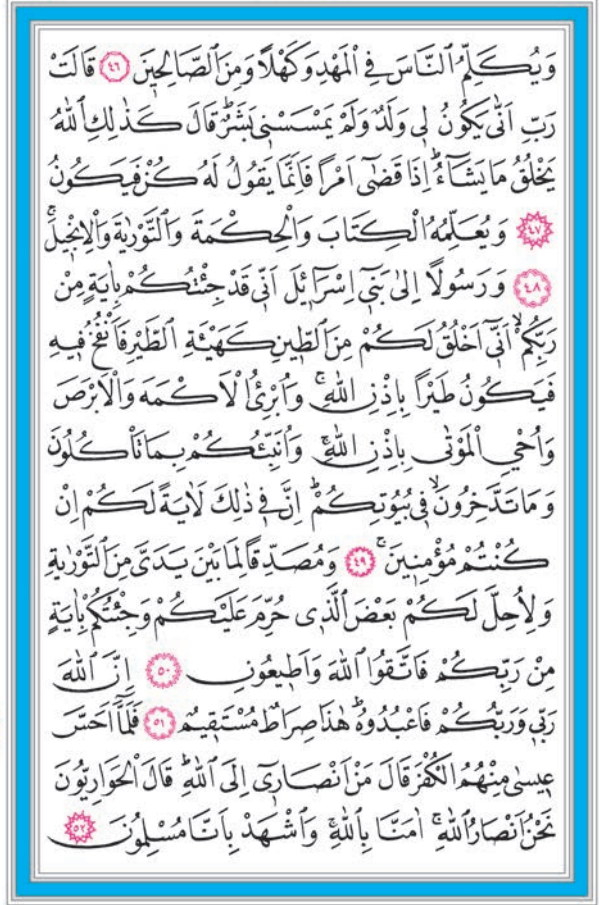 وَيُكَلِّمُ النَّاسَ فِي الْمَهْدِ وَكَهْلًا وَمِنَ الصَّالِحِينَ ﴿٤٦﴾ قَالَتْ
رَبِّ اَنّٰى يَكُونُ لِي وَلَدٌ وَلَمْ يَمْسَسْنِي بَشَرٌۜ قَالَ كَذٰلِكِ اللّٰهُ
يَخْلُقُ مَا يَشَٓاءُۜ اِذَا قَضٰٓى اَمْرًا فَاِنَّمَا يَقُولُ لَهُ كُنْ فَيَكُونُ
﴿٤٧﴾ وَيُعَلِّمُهُ الْكِتَابَ وَالْحِكْمَةَ وَالتَّوْرٰيةَ وَالْاِنْجِيلَۚ
﴿٤٨﴾ وَرَسُولًا اِلٰى بَنِٓي اِسْرَٓائِلَ اَنِّي قَدْ جِئْتُكُمْ بِاٰيَةٍ مِنْ
رَبِّكُمْۙ اَنِّٓي اَخْلُقُ لَكُمْ مِنَ الطِّينِ كَهَيْـَٔةِ الطَّيْرِ فَاَنْفُخُ فِيهِ
فَيَكُونُ طَيْرًا بِاِذْنِ اللّٰهِۚ وَاُبْرِئُ الْاَكْمَهَ وَالْاَبْرَصَ
وَاُحْيِ الْمَوْتٰى بِاِذْنِ اللّٰهِۚ وَاُنَبِّئُكُمْ بِمَا تَأْكُلُونَ
وَمَا تَدَّخِرُونَۙ فِي بُيُوتِكُمْۜ اِنَّ فِي ذٰلِكَ لَاٰيَةً لَكُمْ اِنْ
كُنْتُمْ مُؤْمِنِينَۚ ﴿٤٩﴾ وَمُصَدِّقًا لِمَا بَيْنَ يَدَيَّ مِنَ التَّوْرٰيةِ
وَلِاُحِلَّ لَكُمْ بَعْضَ الَّذِي حُرِّمَ عَلَيْكُمْ وَجِئْتُكُمْ بِاٰيَةٍ
مِنْ رَبِّكُمْ فَاتَّقُوا اللّٰهَ وَاَطِيعُونِ ﴿٥٠﴾ اِنَّ اللّٰهَ
رَبِّي وَرَبُّكُمْ فَاعْبُدُوهُۜ هٰذَا صِرَاطٌ مُسْتَقِيمٌ ﴿٥١﴾ فَلَمَّٓا اَحَسَّ
عِيسٰى مِنْهُمُ الْكُفْرَ قَالَ مَنْ اَنْصَارِٓي اِلَى اللّٰهِۜ قَالَ الْحَوَارِيُّونَ
نَحْنُ اَنْصَارُ اللّٰهِۚ اٰمَنَّا بِاللّٰهِۚ وَاشْهَدْ بِاَنَّا مُسْلِمُونَ ﴿٥٢﴾